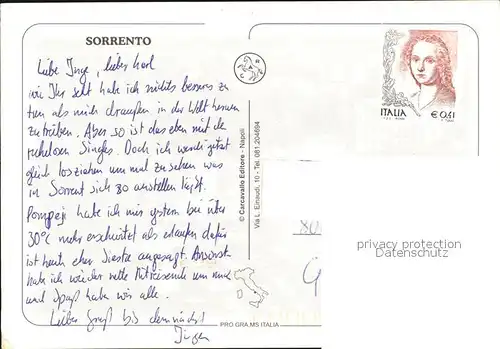 SORRENTO
Liebe Inge, lieber Karl
wie Ihr seht habe ich nichts besseres zu
tun als mich draußen in der Welt herum
zu treiben. Aber so ist das eben mit de
ruhelosen Singles. Doch ich werde jetzt
gleich losziehen um mal zu sehen was
in Sorrent sich so anstellen läßt.
Pompeji habe ich mir gestern bei über
30°C mehr erschwitzt als erlaufen dafür
ist heute eher Siesta angesagt. Ansonst
habe ich wieder nette Mitreisende um mich
und Spaß haben wir alle.
Lieber Gruß bis demnächst
Jürgen
© Carcavallo Editore - Napoli
Via L. Einaudi, 10 - Tel. 081.204694
PRO GRA.MS ITALIA
ITALIA
€ 0,41
80
privacy protection
Datenschutz